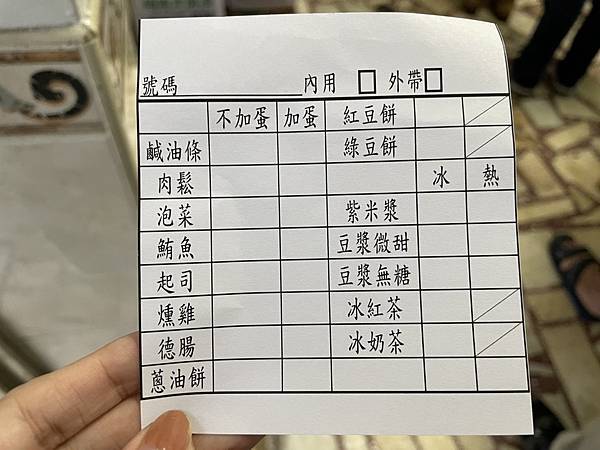 號碼 內用 □ 外帶 □
不加蛋 加蛋 紅豆餅
鹹油條 綠豆餅
肉鬆 冰 熱
泡菜 紫米漿
鮪魚 豆漿微甜
起司 豆漿無糖
燻雞 冰紅茶
德腸 冰奶茶
蔥油餅